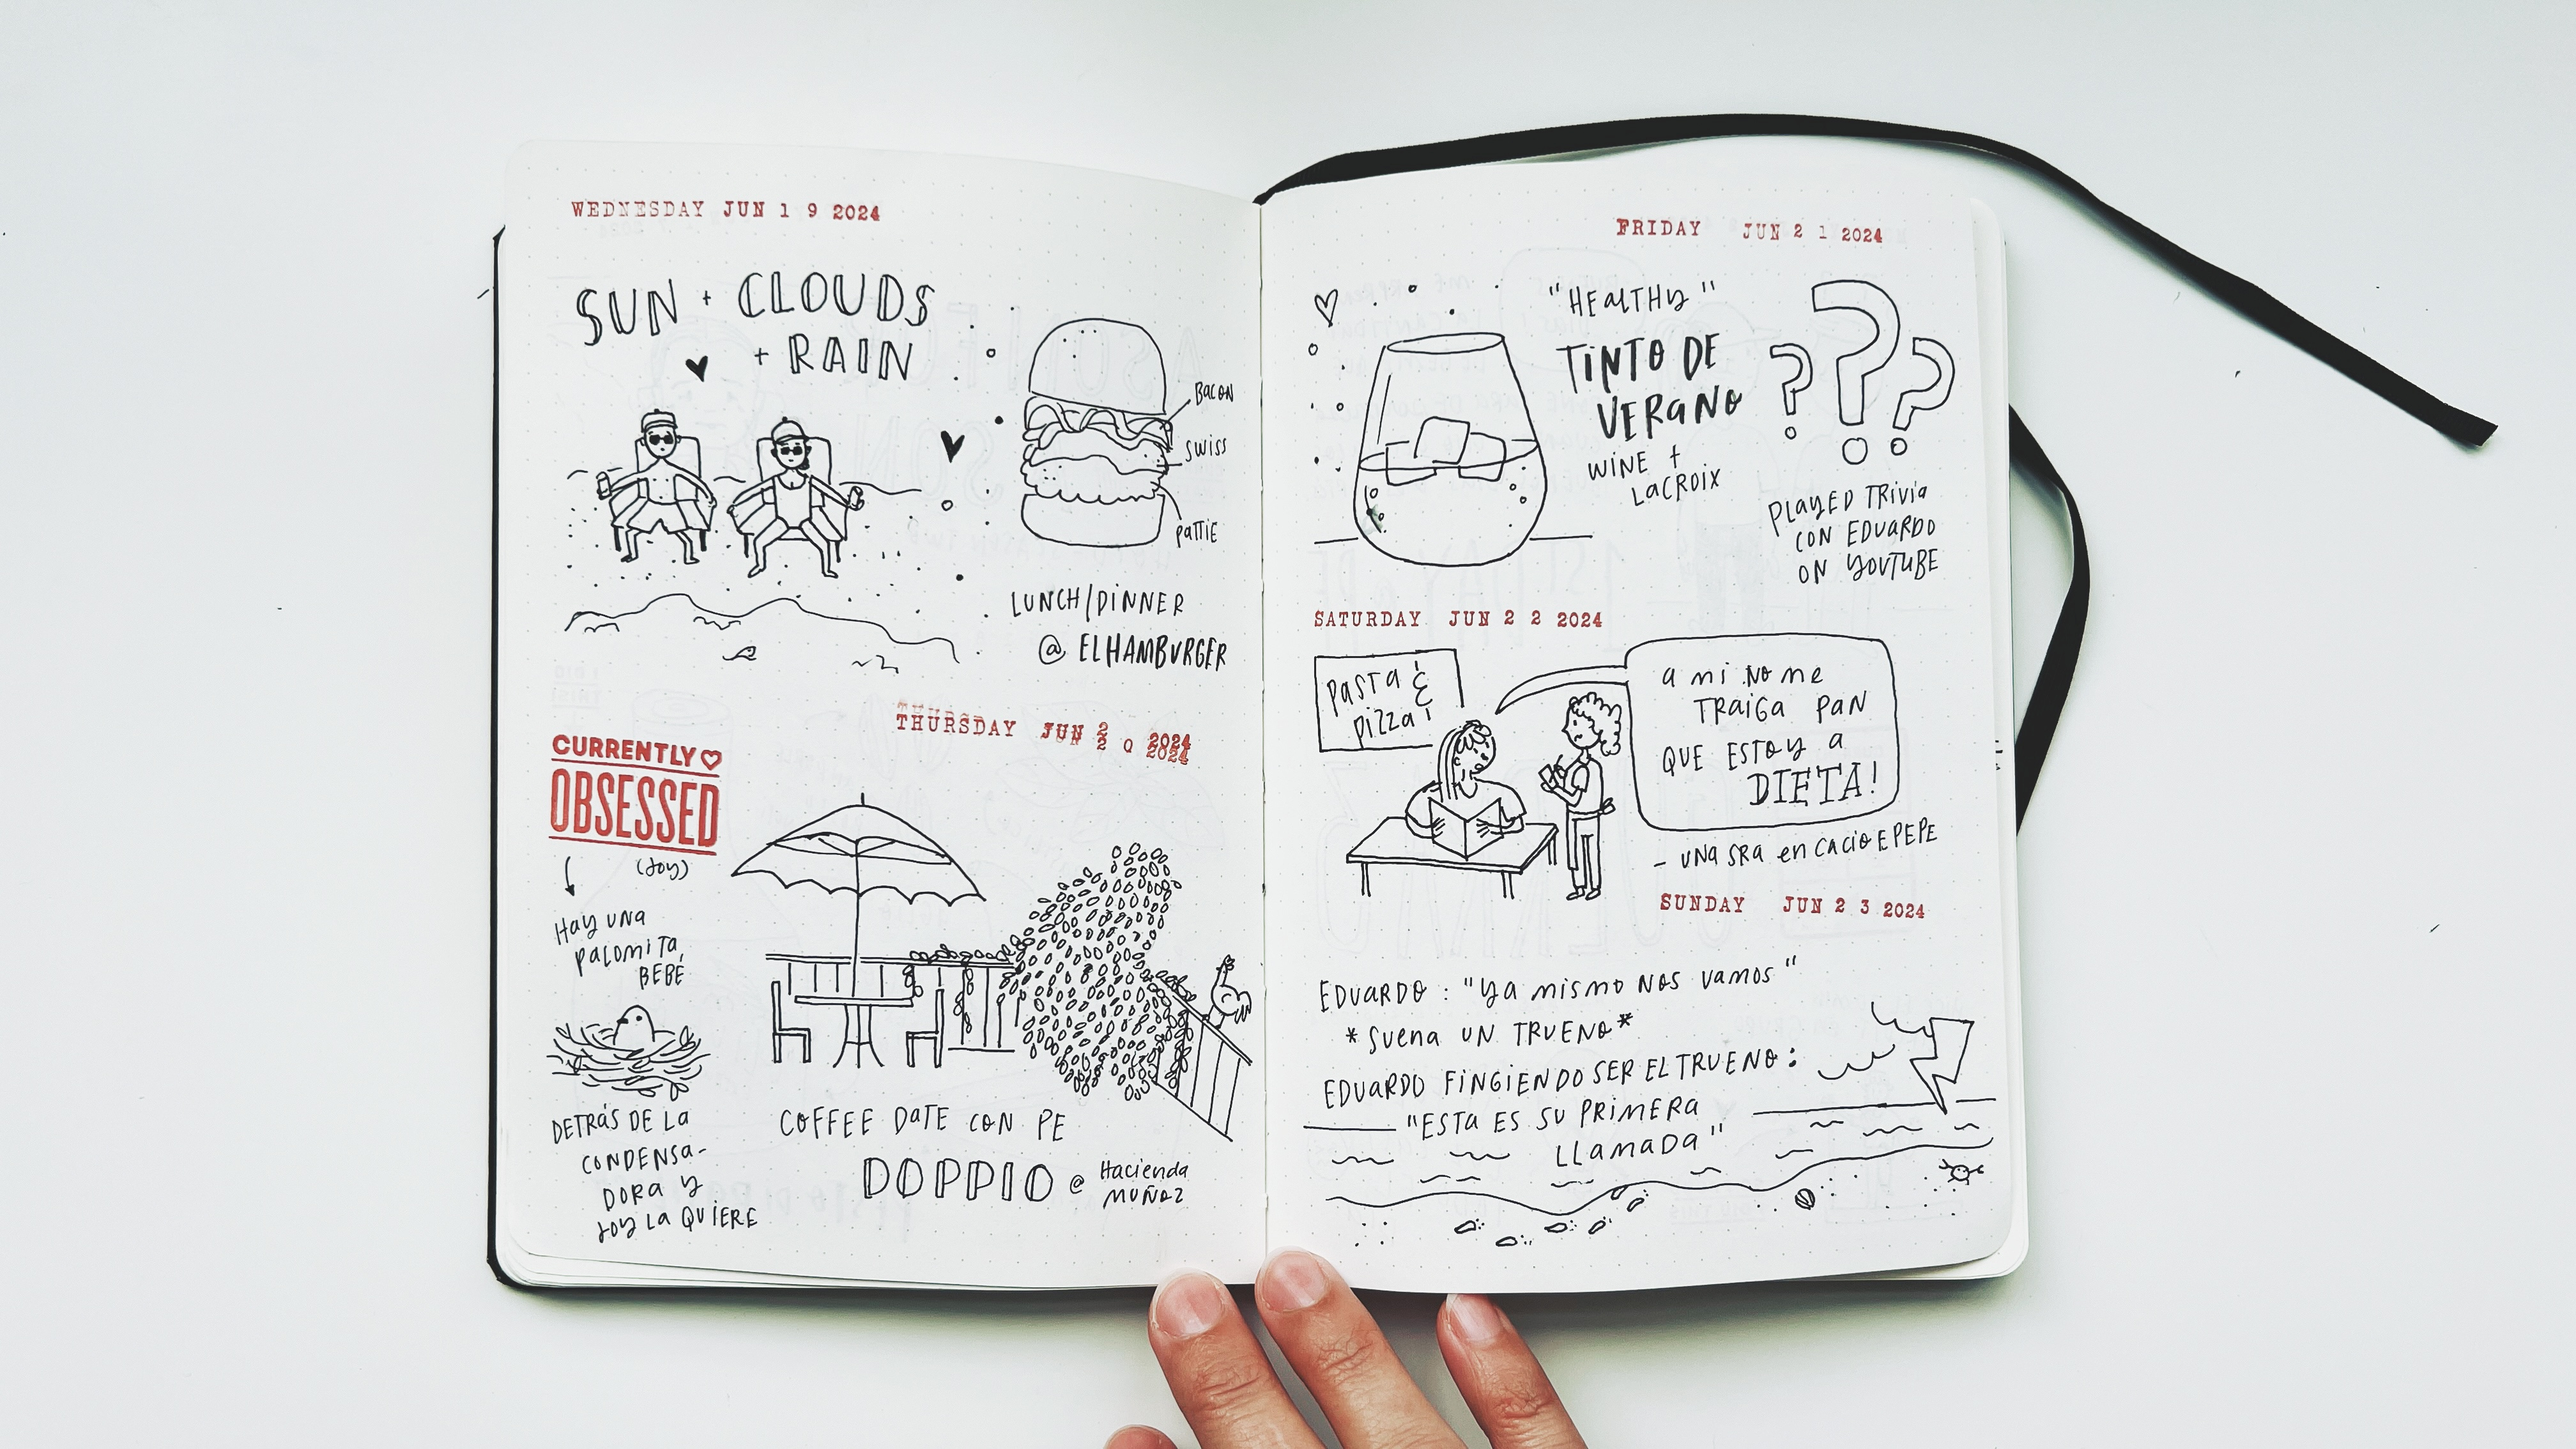 WEDNESDAY JUN 19 2024
SUN + CLOUDS
+ RAIN
BACON
SWISS
PATTIE
LUNCH/DINNER
@ ELHAMBURGER
THURSDAY JUN 20 2024
CURRENTLY
OBSESSED
(JOY)
HAY UNA
PALOMITA
BEBÉ
DETRÁS DE LA
CONDENSA-
DORA Y
JOY LA QUIERE
COFFEE DATE CON PE
DOPPIO @ HACIENDA
MUÑOZ
FRIDAY JUN 21 2024
"HEALTHY"
TINTO DE
VERANO
WINE +
LACROIX
PLAYED TRIVIA
CON EDUARDO
ON YOUTUBE
SATURDAY JUN 22 2024
PASTA &
PIZZA!
A MI NO ME
TRAIGA PAN
QUE ESTOY A
DIETA!
- UNA SRA EN CACIO E PEPE
SUNDAY JUN 23 2024
EDUARDO: "YA MISMO NOS VAMOS"
*SUENA UN TRUENO*
EDUARDO FINGIENDO SER EL TRUENO:
"ESTA ES SU PRIMERA
LLAMADA"